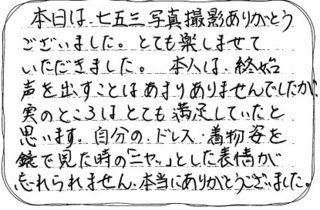 本日は、七五三写真撮影ありがとう
ございました。とても楽しませて
いただきました。本人は、終始
声を出すことはあまりありませんでしたが、
実のところはとても満足していたと
思います。自分の、ドレス・着物姿を
鏡で見た時の「ニヤッ」とした表情が
忘れられません。本当にありがとうございました。